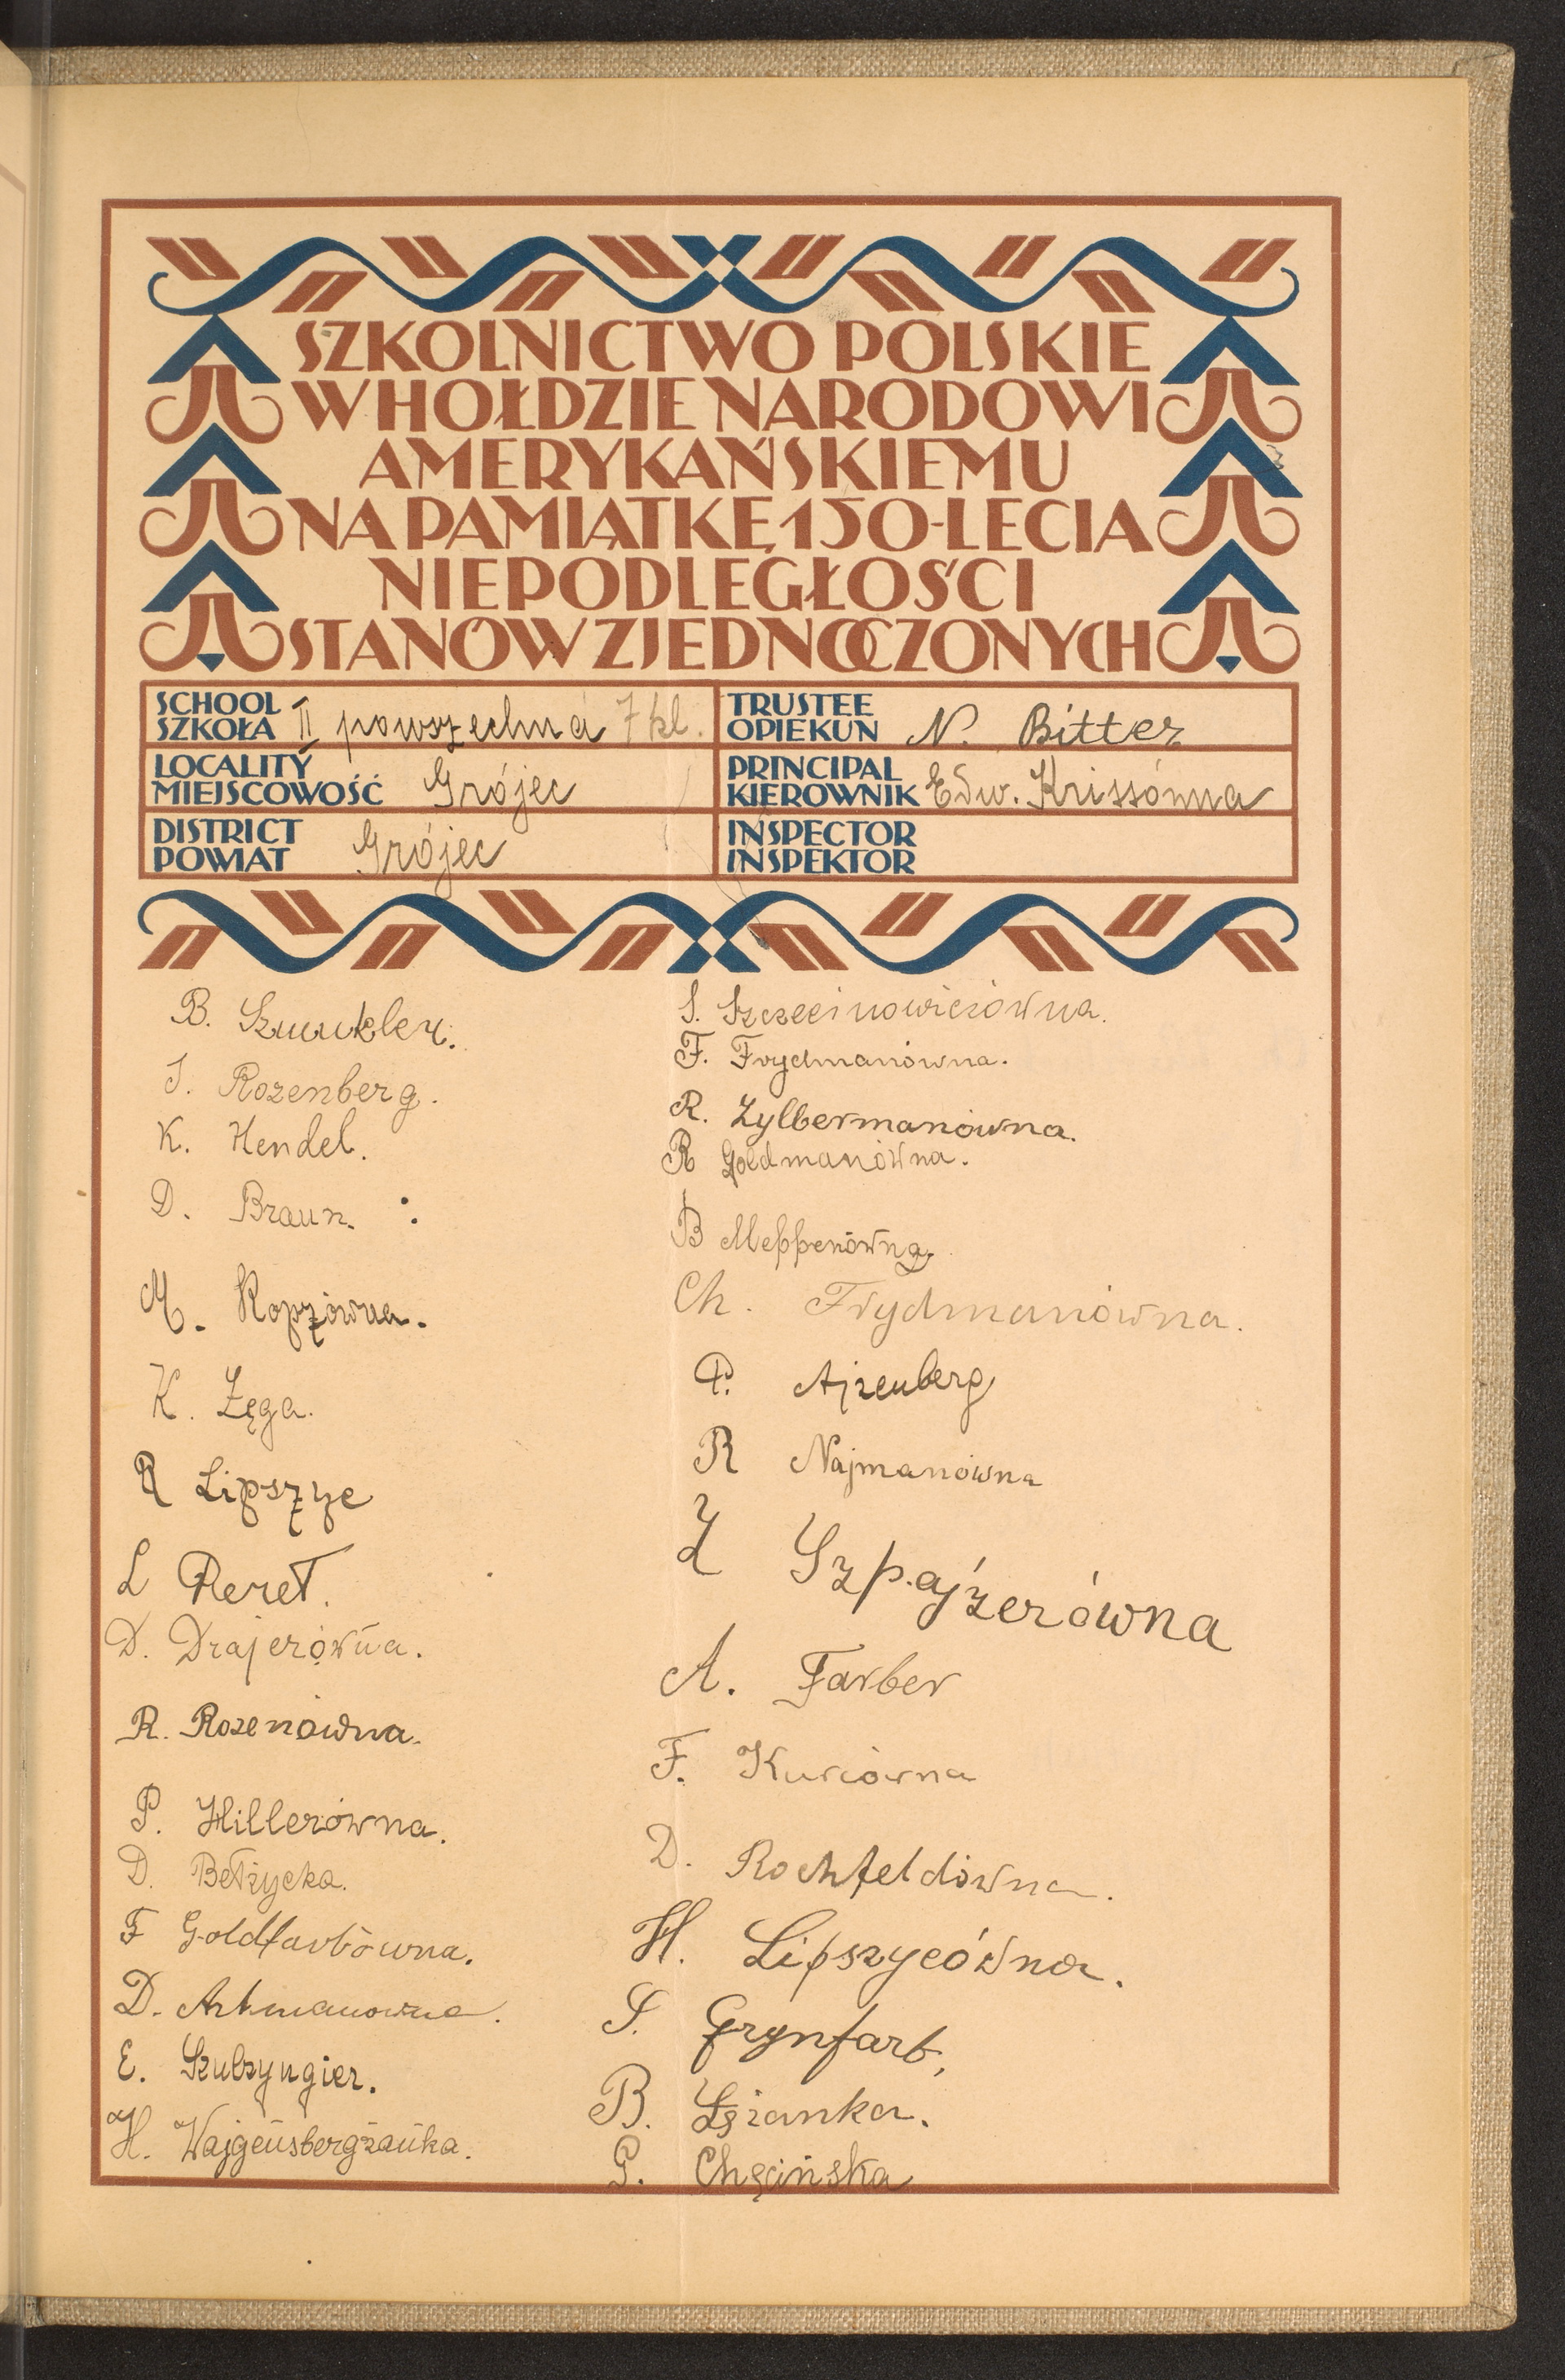 SZKOLNICTWO POLSKIE
W HOŁDZIE NARODOWI
AMERYKAŃSKIEMU
NA PAMIĄTKĘ 150-LECIA
NIEPODLEGŁOŚCI
STANÓW ZJEDNOCZONYCH
SCHOOL
SZKOŁA II powszechna 7 kl.
TRUSTEE
OPIEKUN N. Bitter
LOCALITY
MIEJSCOWOŚĆ Grójec
PRINCIPAL
KIEROWNIK Edw. Krissówna
DISTRICT
POWIAT Grójec
INSPECTOR
INSPEKTOR
B. Szmukler.
J. Rozenberg.
K. Hendel.
D. Braun.
M. Kopzówna.
K. Zęga.
R Lipszyc
L Reret.
D. Drajerówna.
R. Rozenówna.
P. Hillerówna.
D. Bełżycka.
F Goldfarbówna.
D. Artmanowna.
E. Szulzyngier.
H. Wajgensbergżanka.
S. Szczecinowiczówna.
F. Frydmanówna.
R. Zylbermanówna.
R Goldmanówna.
B
Ch. Frydmanówna.
P. Ajzenberg
R Najmanówna
Z Szpajzerówna
A. Farber
F.
D. Rochfeldówna.
H. Lipszycówna.
S. Grynfarb.
B. Łężanka.
G. Chęcińska